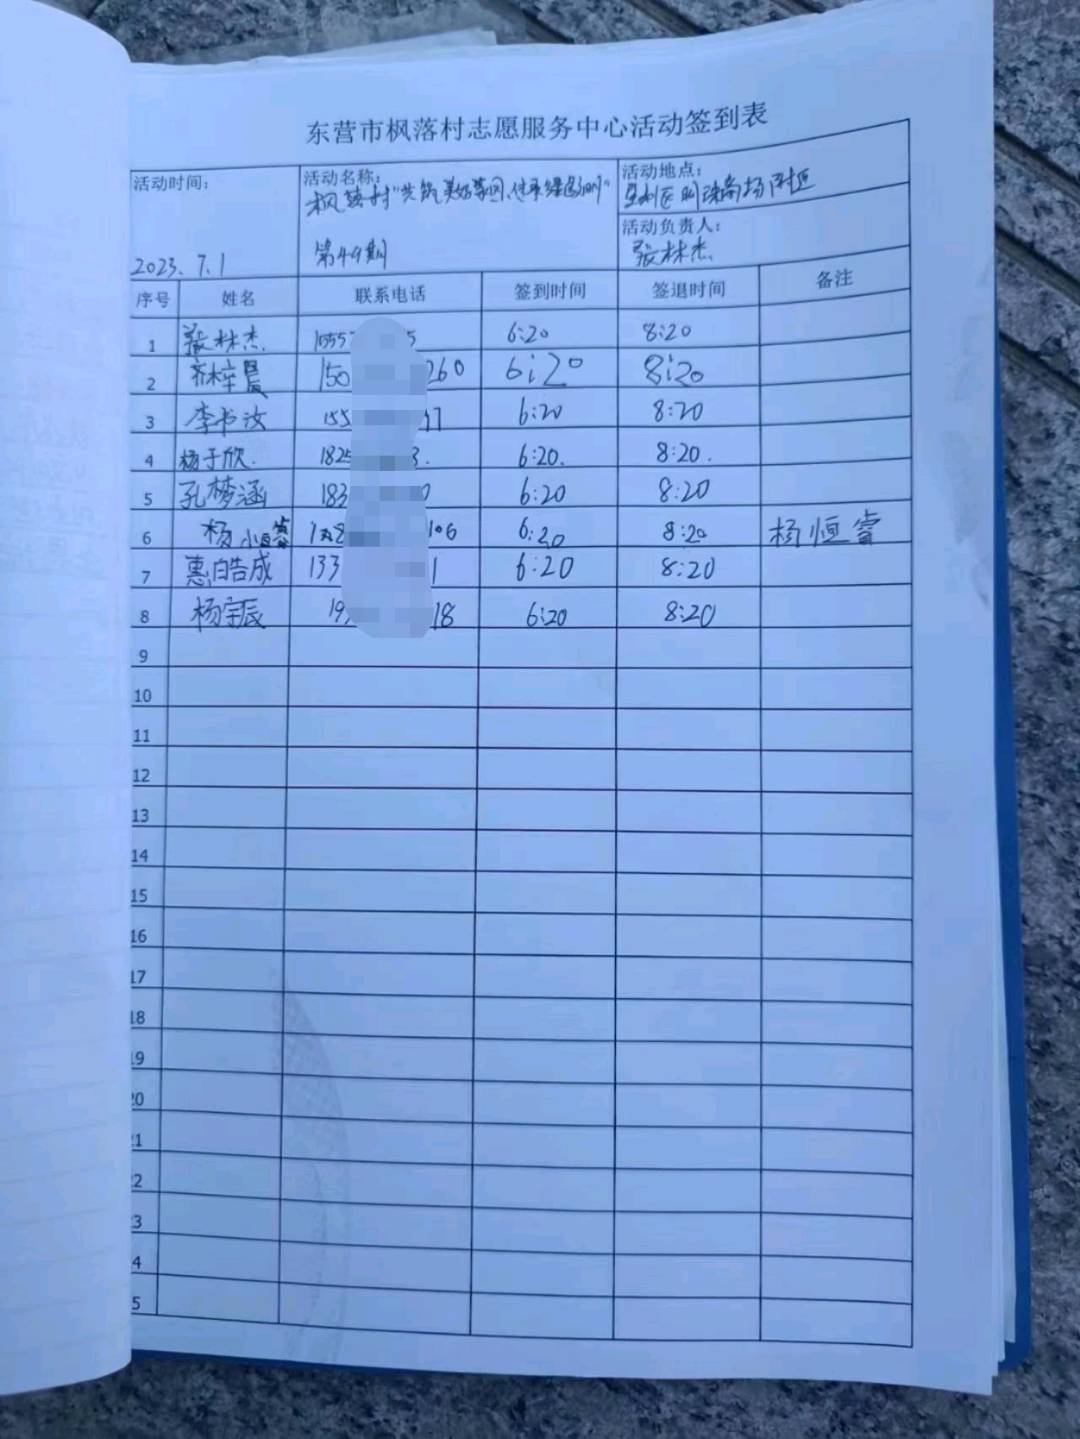 东营市枫落村志愿服务中心活动签到表
活动时间：
2023.7.1
活动名称：
第49期
活动地点：
活动负责人：
张林杰
序号 姓名 联系电话 签到时间 签退时间 备注
1 张林杰 6:20 8:20
2 150 260 6:20 8:20
3 李书汝 155 6:20 8:20
4 杨于欣. 1825 3. 6:20. 8:20.
5 孔梦涵 183 0 6:20 8:20
6 杨恒睿 106 6:20 8:20 杨恒睿
7 惠皓成 133 1 6:20 8:20
8 杨宇辰 18 6:20 8:20
9
10
11
12
13
14
15
16
17
18
19
20
21
2
3
4
5